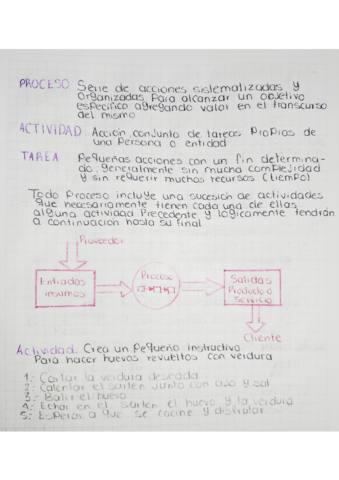 PROCESO Serie de acciones sistematizadas y
organizadas para alcanzar un objetivo
especifico agregando valor en el transcurso
del mismo
ACTIVIDAD Acción conjunto de tareas propias de
una persona o entidad
TAREA Pequeñas acciones con un fin determina-
do, generalmente sin mucha complejidad
y sin requerir muchos recursos (tiempo)
Todo Proceso incluye una sucesión de actividades
que necesariamente tienen cada una de ellas
alguna actividad Precedente y lógicamente tendrán
a continuación hasta su final
Proveedor
Entradas
insumos
Proceso
Salidas
Producto o
servicio
Cliente
Actividad. Crea un Pequeño instructivo
Para hacer huevos revueltos con verdura
1.- Cortar la verdura deseada
2.- Calentar el sarten junto con ajo y sal
3.- Batir el huevo
4.- Echar en el sarten el huevo y la verdura
5.- Esperar a que se cocine y disfrutar